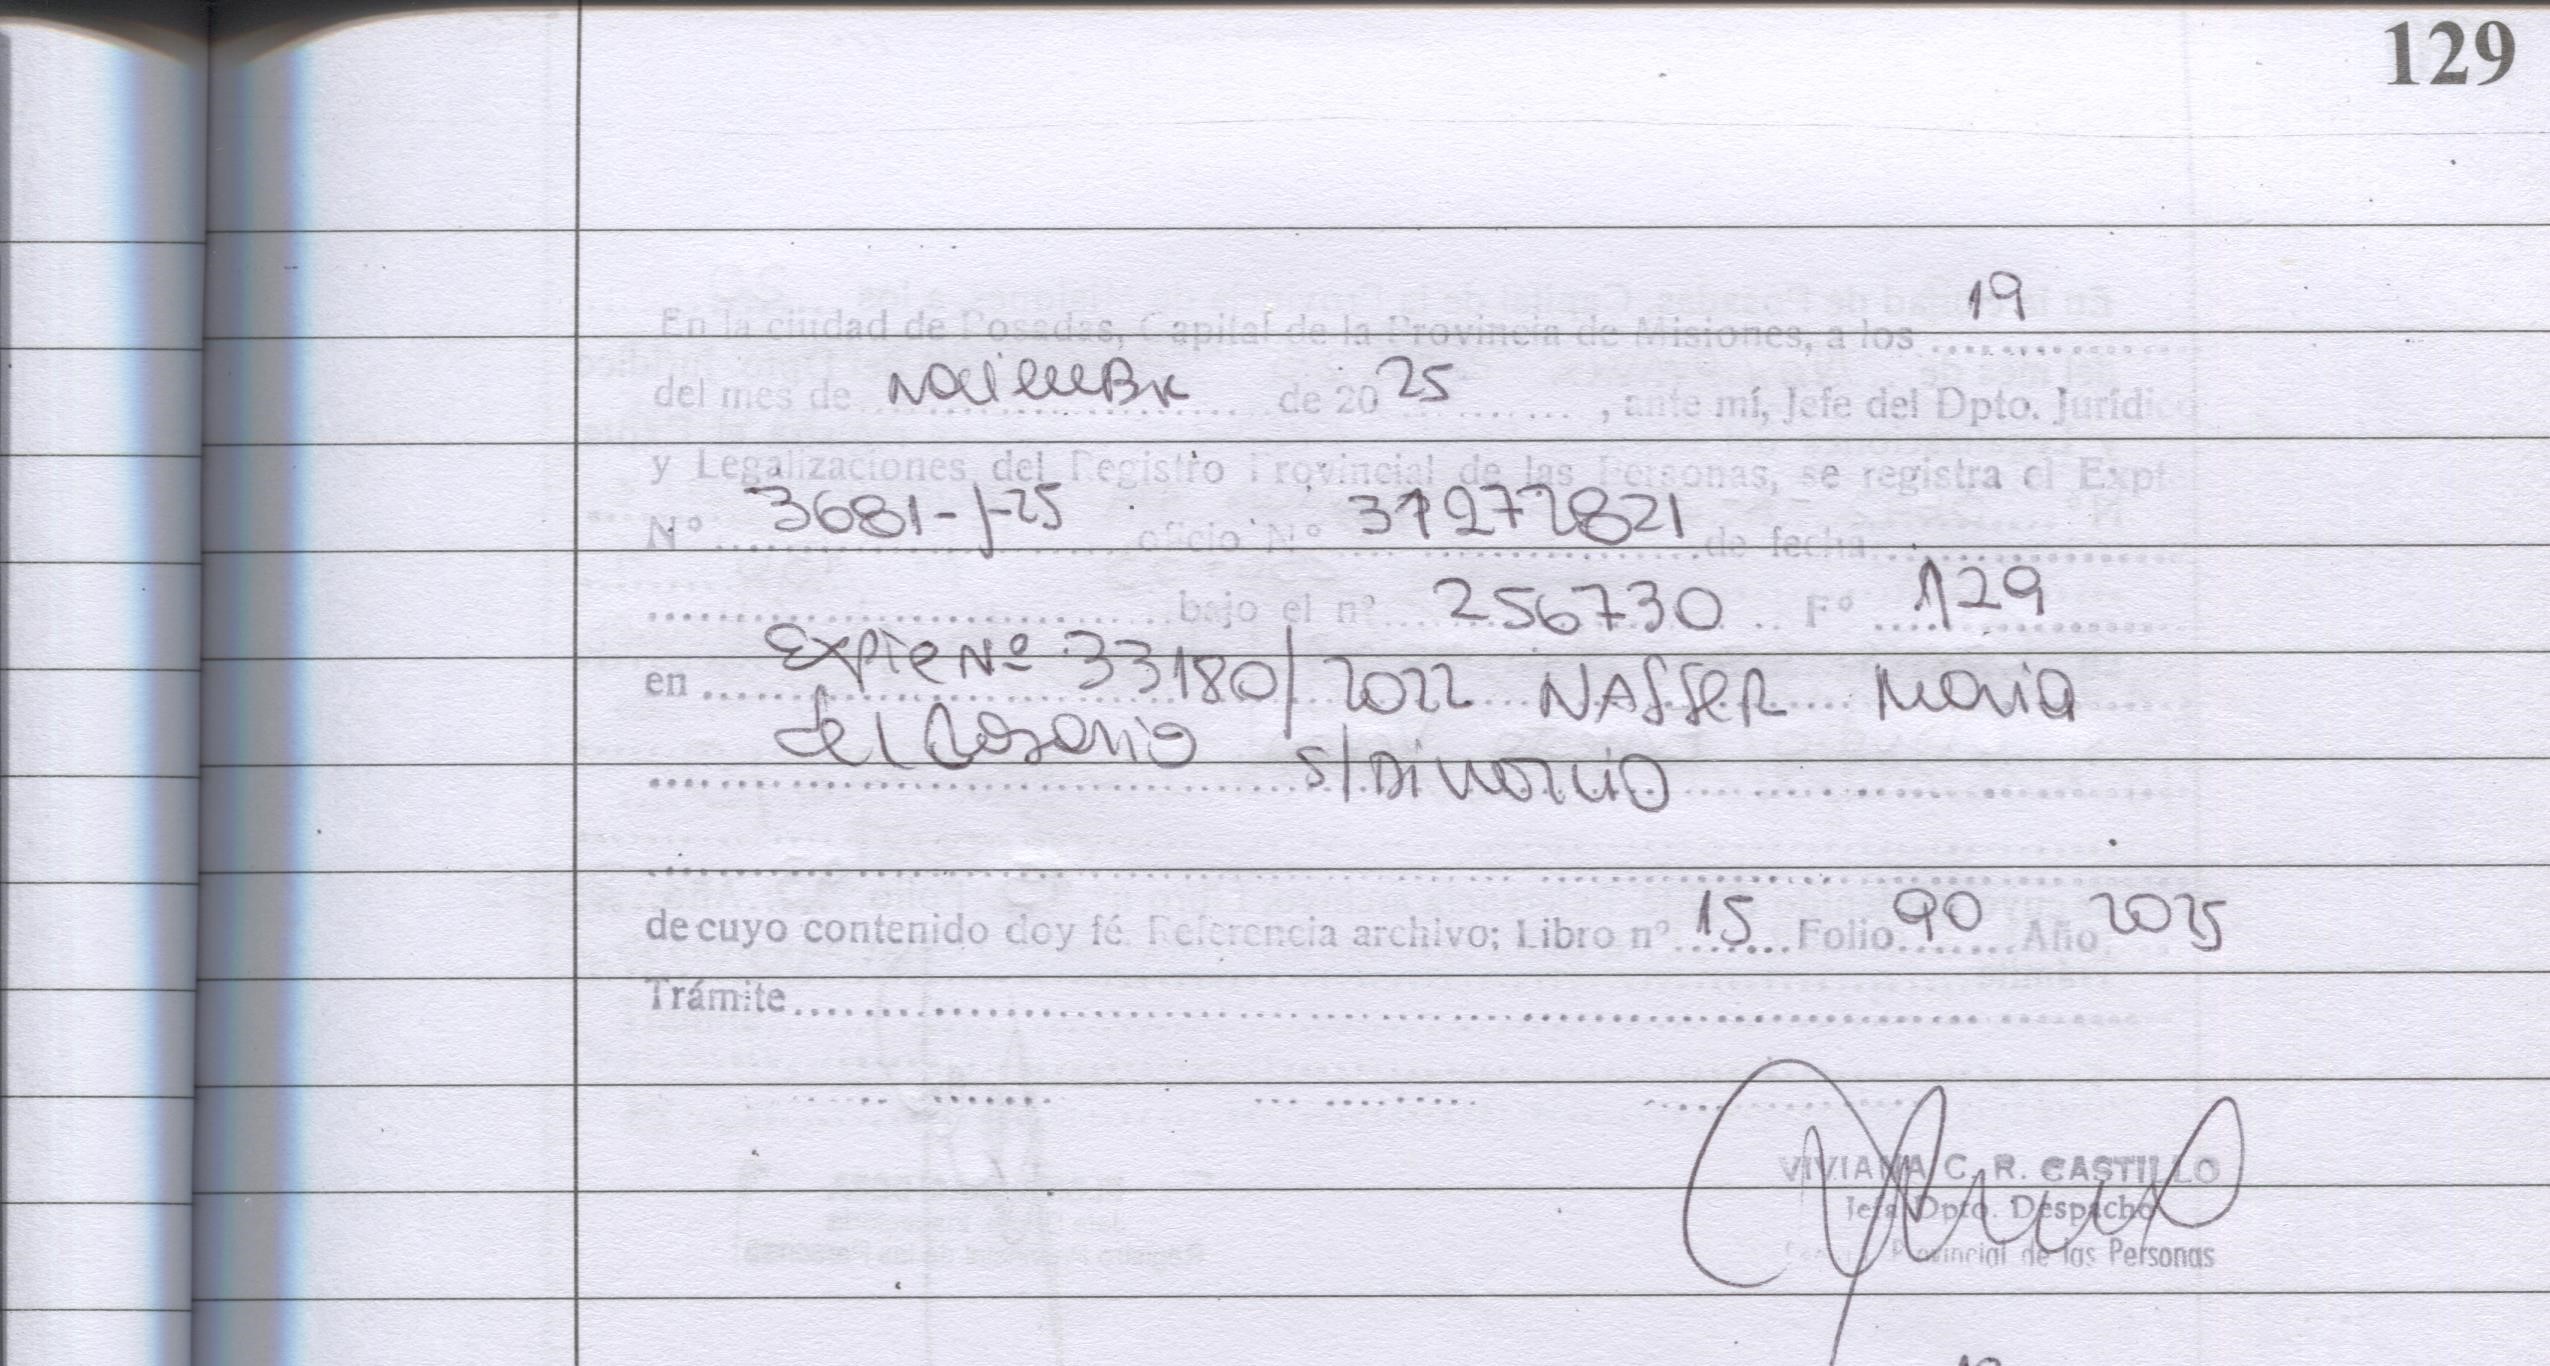 129
En la ciudad de Posadas, Capital de la Provincia de Misiones, a los 19
del mes de Noviembre de 20 25, ante mí, Jefe del Dpto. Jurídico
y Legalizaciones del Registro Provincial de las Personas, se registra el Expte
Nº 3681-J-25 oficio Nº 31272821 de fecha
bajo el nº 256730 Fº 129
en Expte Nº 33180/2022 NASSER Maria
del Rosario s/Divorcio
de cuyo contenido doy fé. Referencia archivo; Libro nº 15 Folio 90 Año 2025
Trámite
VIVIANA C. R. CASTILLO
Jefa Dpto. Despacho
Provincial de las Personas